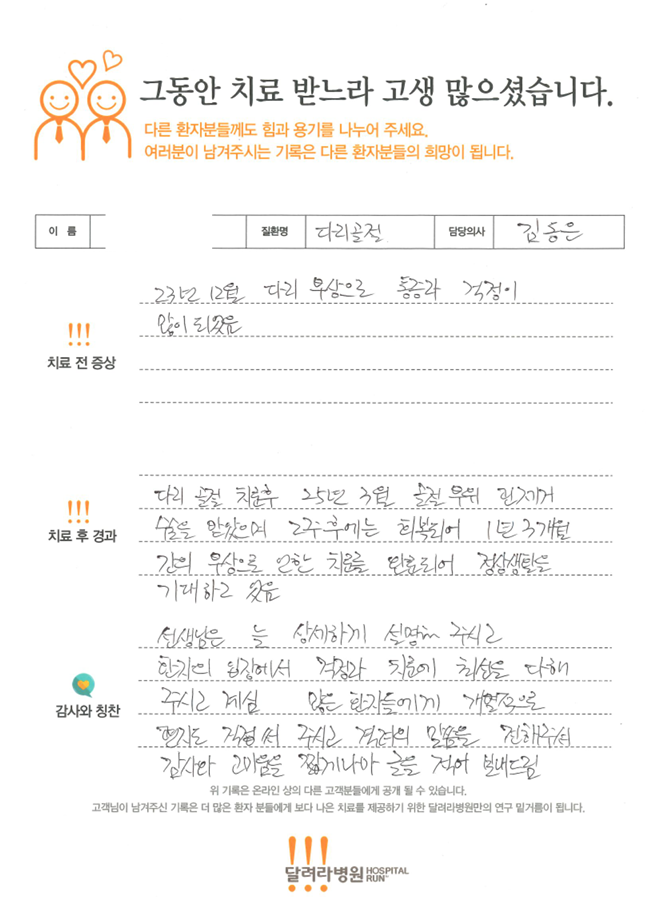 그동안 치료 받느라 고생 많으셨습니다.
다른 환자분들께도 힘과 용기를 나누어 주세요.
여러분이 남겨주시는 기록은 다른 환자분들의 희망이 됩니다.
이 름 질환명 다리골절 담당의사 김동은
23년 12월 다리 부상으로 통증과 걱정이
많이 되었음
!!!
치료 전 증상
다리 골절 치료후 25년 3월 골절 부위 핀제거
수술을 받았으며 2주후에는 회복되어 1년 3개월
!!!
치료 후 경과
간의 부상으로 인한 치료를 완료되어 정상생활을
기대하고 있음
선생님은 늘 상세하게 설명해 주시고
환자의 입장에서 걱정과 치료에 최선을 다해
감사와 칭찬
주시고 계심 많은 환자들에게 개별적으로
편지도 직접 써 주시고 격려의 말씀을 전해주셔
감사와 고마움을 짧게나마 글을 적어 보내드림
위 기록은 온라인 상의 다른 고객분들에게 공개 될 수 있습니다.
고객님이 남겨주신 기록은 더 많은 환자 분들에게 보다 나은 치료를 제공하기 위한 달려라병원만의 연구 밑거름이 됩니다.
달려라병원 HOSPITAL RUN